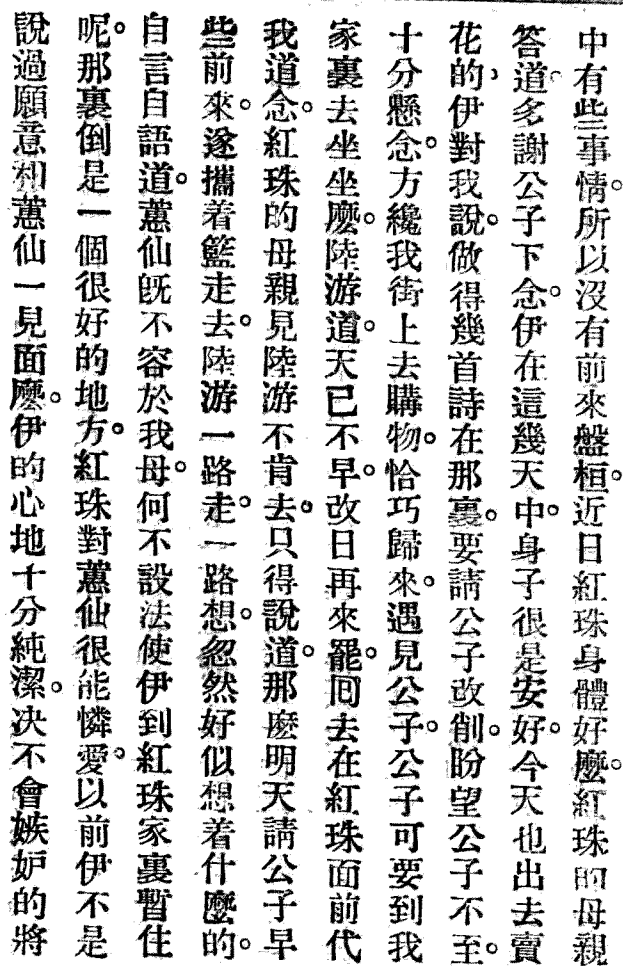 中有些事情。所以沒有前來盤桓。近日紅珠身體好麽。紅珠的母親
答道。多謝公子下念。伊在這幾天中。身子很是安好。今天也出去賣
花的。伊對我說。做得幾首詩在那裏。要請公子改削。盼望公子不至。
十分懸念。方纔我街上去購物。恰巧歸來。遇見公子。公子可要到我
家裏去坐坐麽。陸游道。天已不早。改日再來罷。囘去在紅珠面前代
我道念。紅珠的母親見陸游不肯去。只得說道。那麽明天請公子早
些前來。遂攜着籃走去。陸游一路走。一路想。忽然好似想着什麽的。
自言自語道。蕙仙旣不容於我母。何不設法使伊到紅珠家裏暫住
呢。那裏倒是一個很好的地方。紅珠對蕙仙很能憐愛。以前伊不是
說過願意和蕙仙一見面麽。伊的心地十分純潔。决不會嫉妒的。將